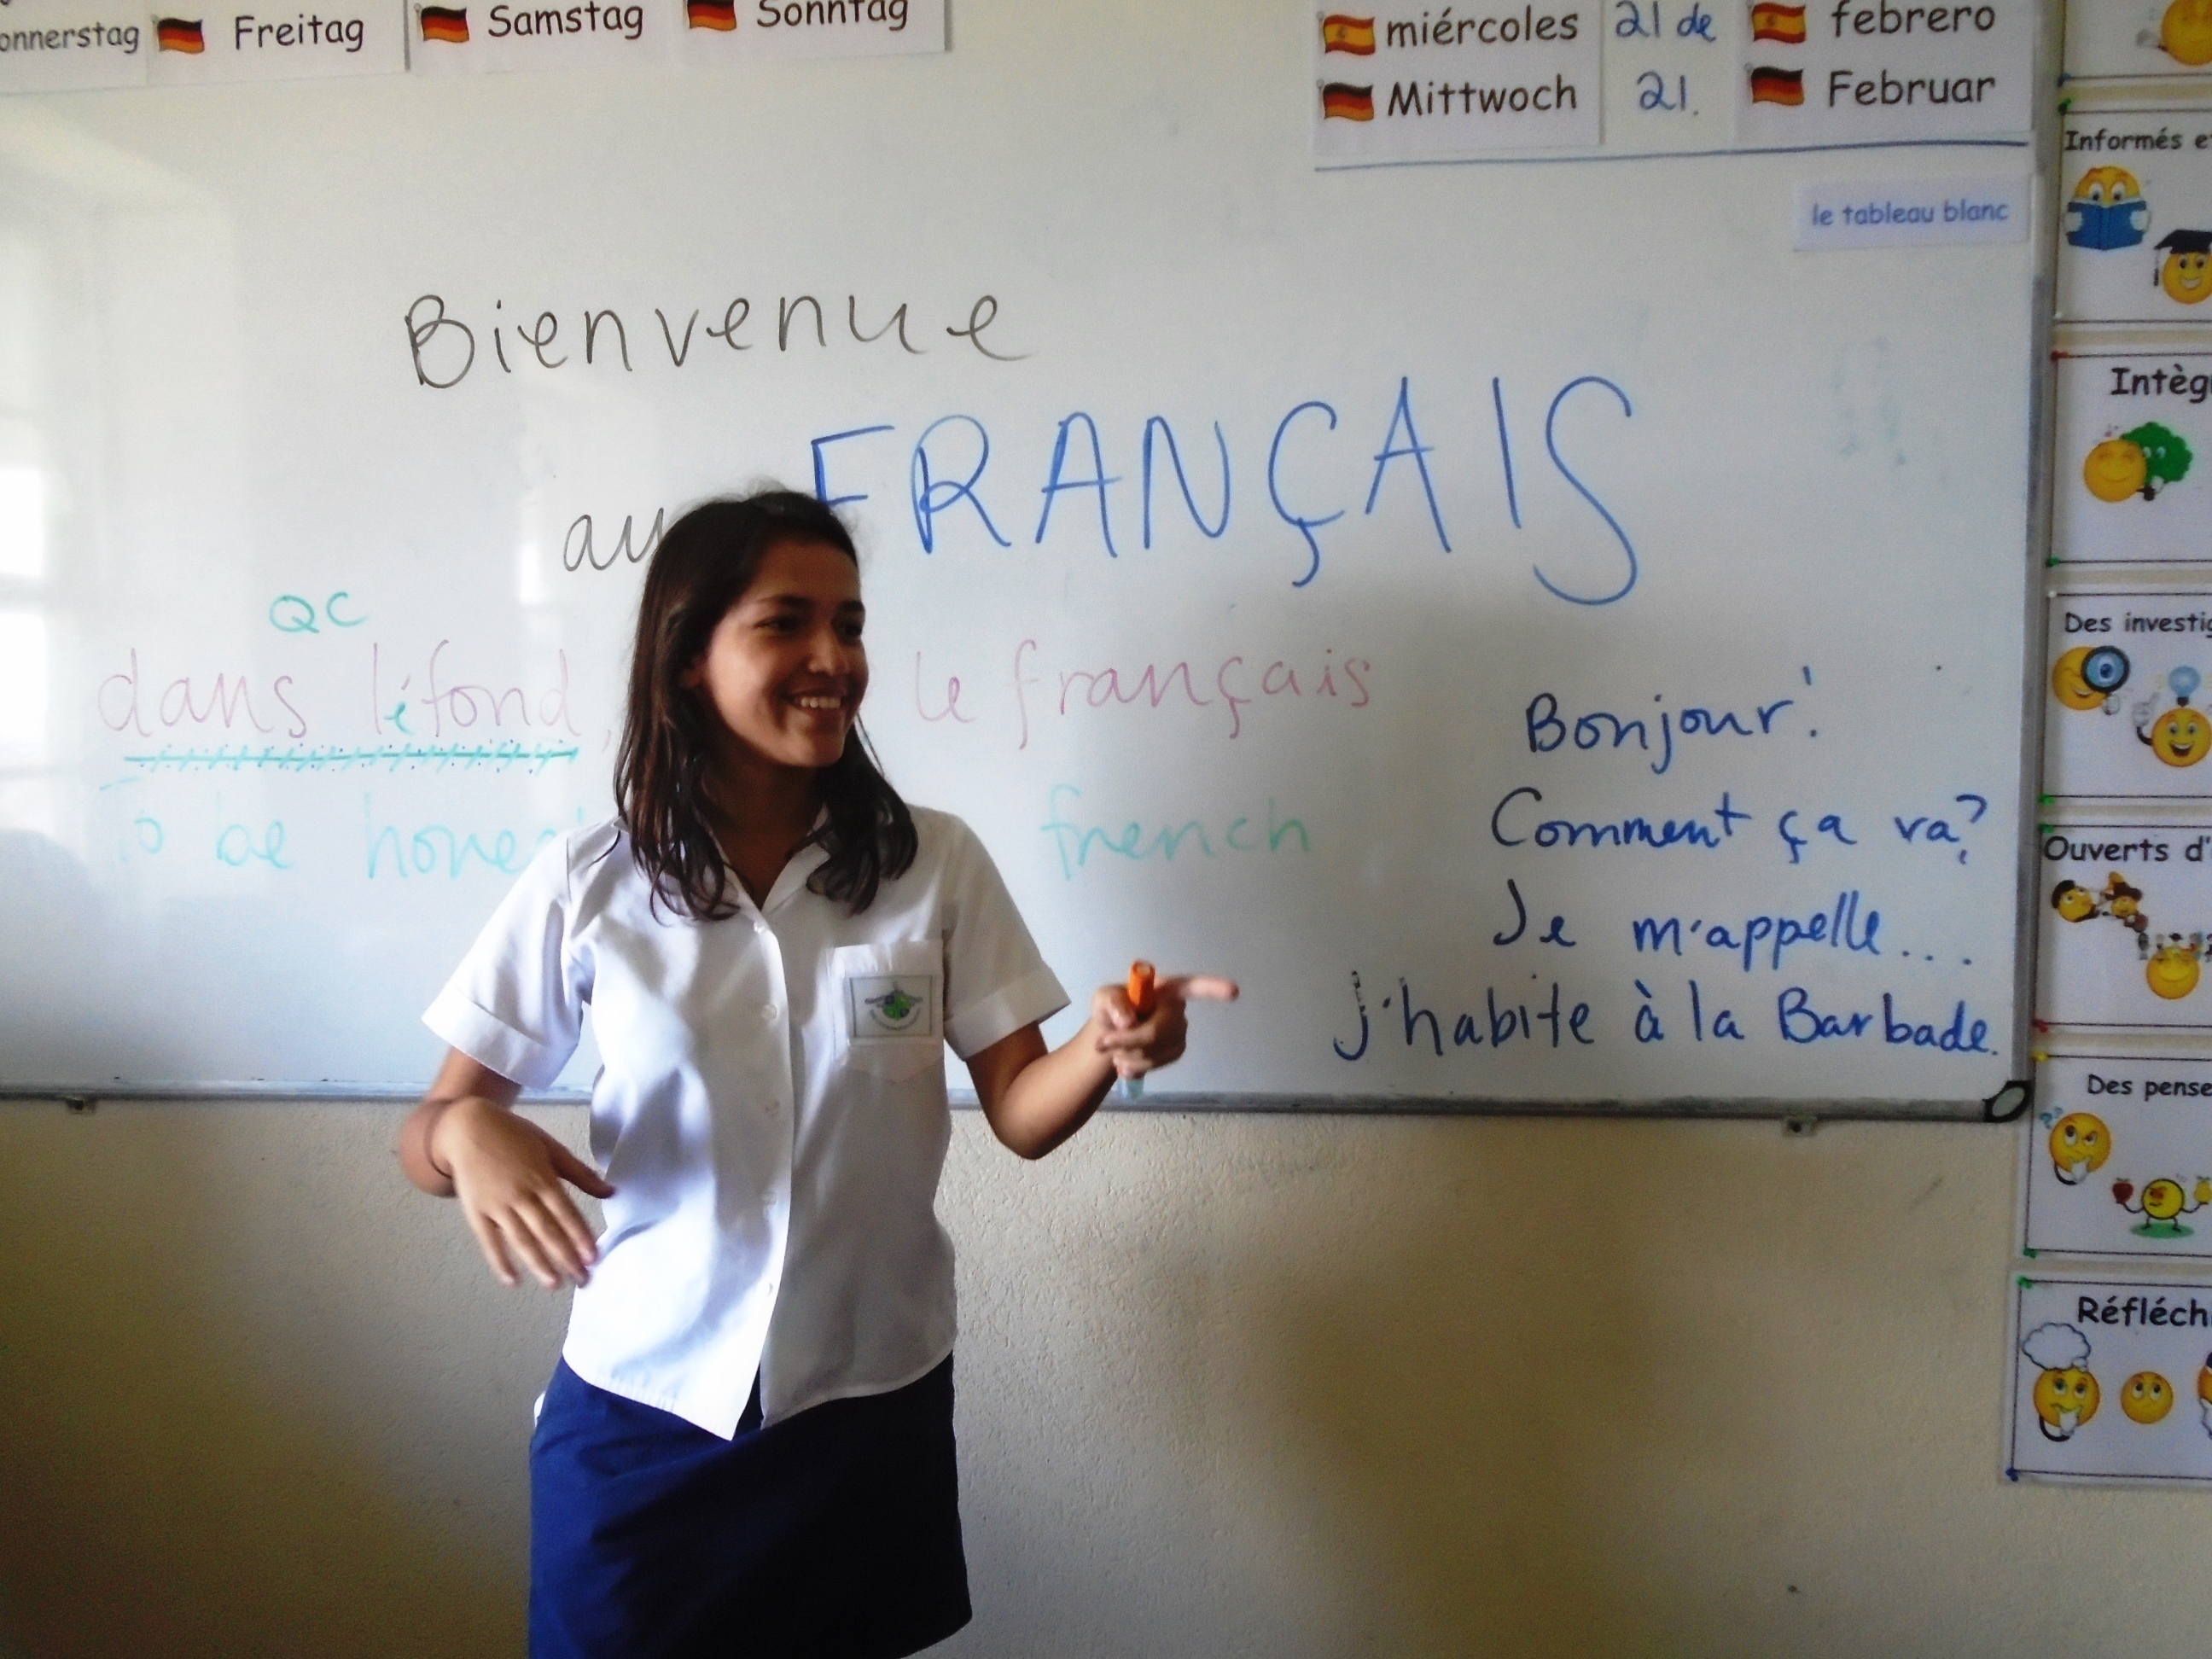 Freitag
Samstag
Sonntag
miércoles 21 de febrero
Mittwoch 21. Februar
le tableau blanc
Bienvenue
au FRANÇAIS
QC
dans l'éfond, le français
To be french
Bonjour!
Comment ça va?
Je m'appelle...
j'habite à la Barbade.
Informés
Des
Ouverts
Des